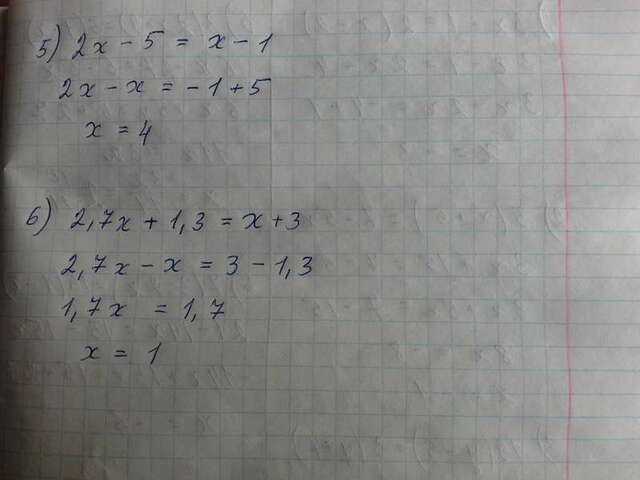 5) 2x - 5 = x - 1
2x - x = -1 + 5
x = 4
6) 2,7x + 1,3 = x + 3
2,7x - x = 3 - 1,3
1,7x = 1,7
x = 1